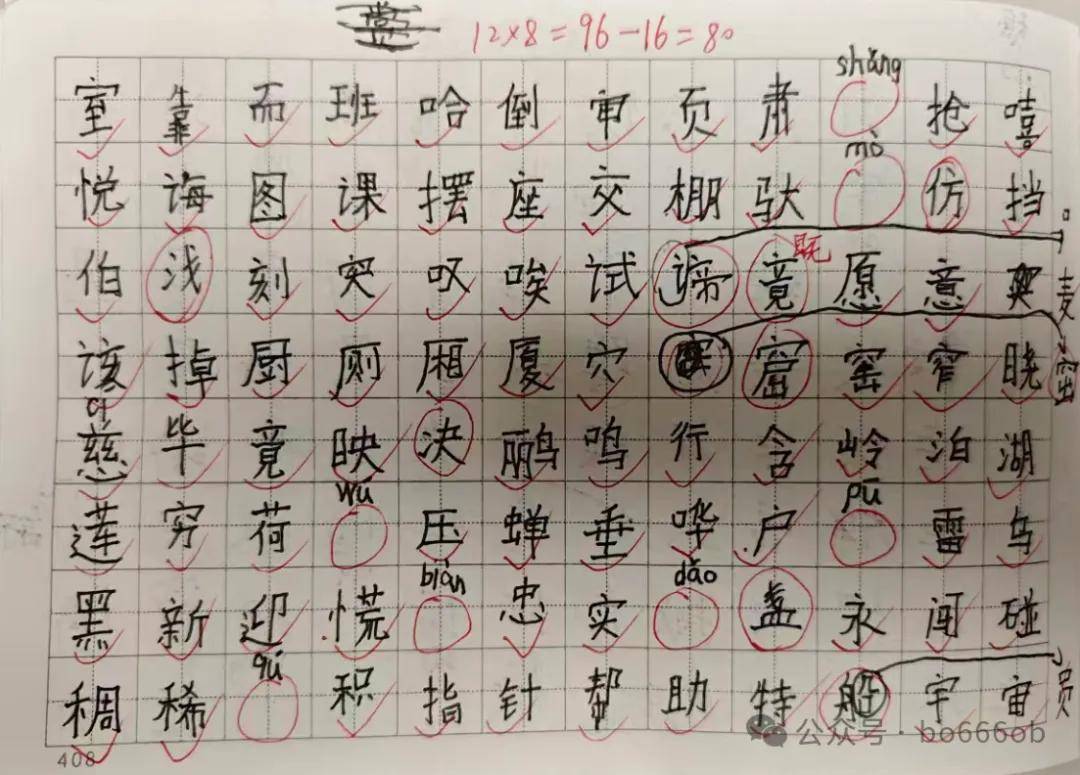 12×8=96-16=80
shǎng
室靠而班哈倒审页肃抢嘻
mò
悦诲图课摆座交棚驮仿挡
伯浅刻突叹唉试谛竟既愿意
麦
该掉厨厕厢厦穴窟窑窄晓
窑
cí
慈毕竟映决鹂鸣行含岭泊湖
wú
pū
莲穷荷压蝉垂哗户雷乌
biān
dǎo
黑新迎慌忠实盏永闯碰
qú
稠稀积指针帮助特船宇宙
员
408
公众号·bo666ob